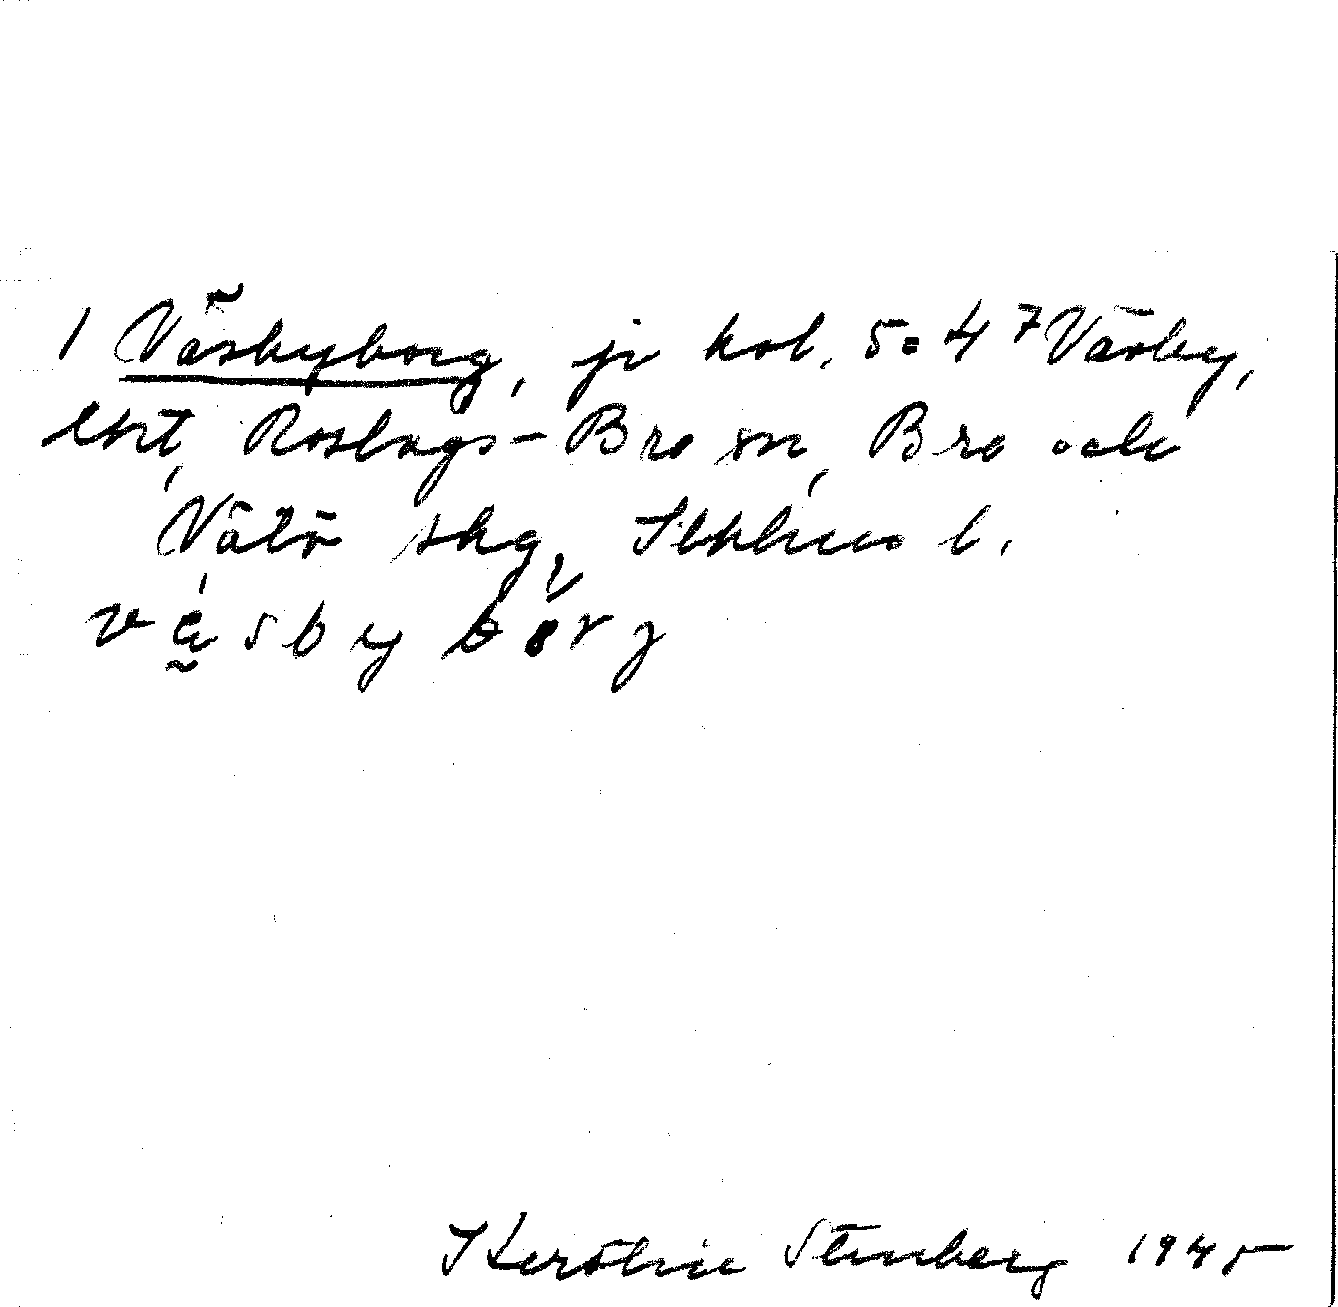 1 Väsbyborg, jo kol. 5:4 7 Väsby,
ekt, Roslags-Bro sn, Bro och
Vätö skg, Sthlms l.
väsbybórg
Karoline Stenberg 1945